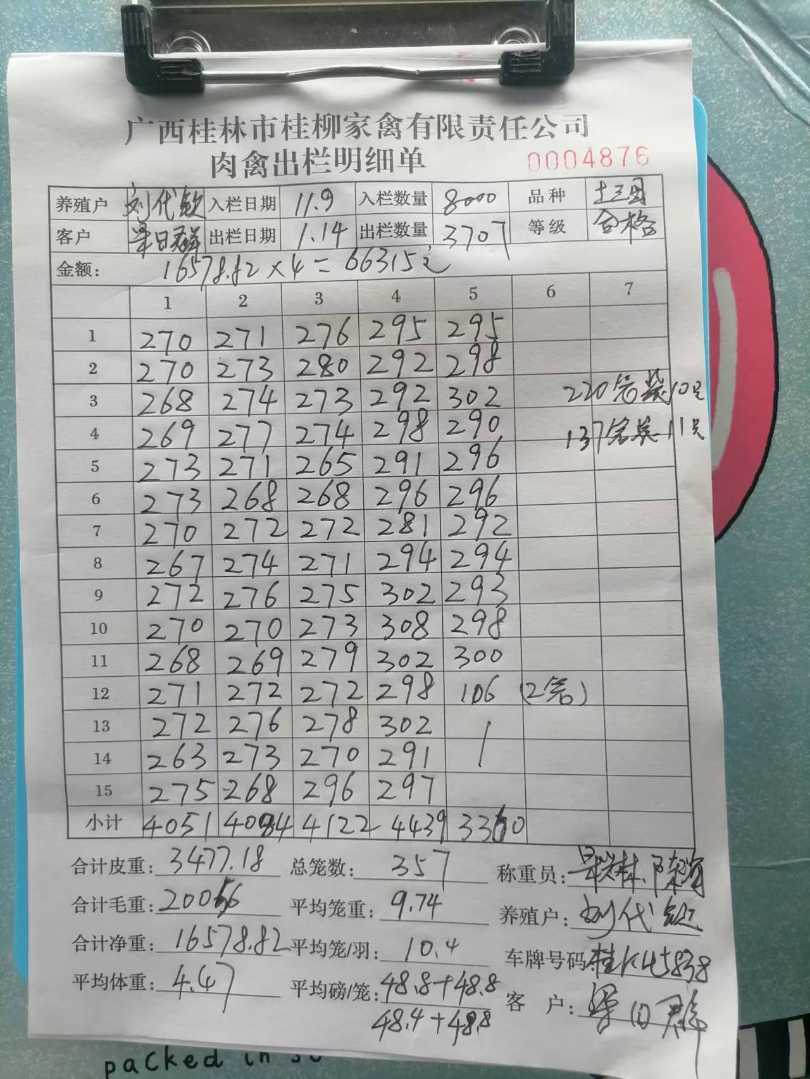 广西桂林市桂柳家禽有限责任公司
肉禽出栏明细单 0004876
养殖户 刘代钦 入栏日期 11.9 入栏数量 8000 品种
客户 梁日群 出栏日期 1.14 出栏数量 3707 等级 合格
金额: 16578.82×4=66315元
1 2 3 4 5 6 7
1 270 271 276 295 295
2 270 273 280 292 298
3 268 274 273 292 302 220笼装10只
4 269 277 274 298 290 137笼装11只
5 273 271 265 291 296
6 273 268 268 296 296
7 270 272 272 281 292
8 267 274 271 294 294
9 272 276 275 302 293
10 270 270 273 308 298
11 268 269 279 302 300
12 271 272 272 298 106 (2笼)
13 272 276 278 302
14 263 273 270 291
15 275 268 296 297
小计 4051 4084 4122 4439 3360
合计皮重: 3477.18 总笼数: 357 称重员:
合计毛重: 20056 平均笼重: 9.74 养殖户: 刘代钦
合计净重: 16578.82 平均笼/羽: 10.4 车牌号码: 桂K45838
平均体重: 4.47 平均磅/笼: 48.8+48.8 客 户: 梁日群
48.4+48.8
packed in